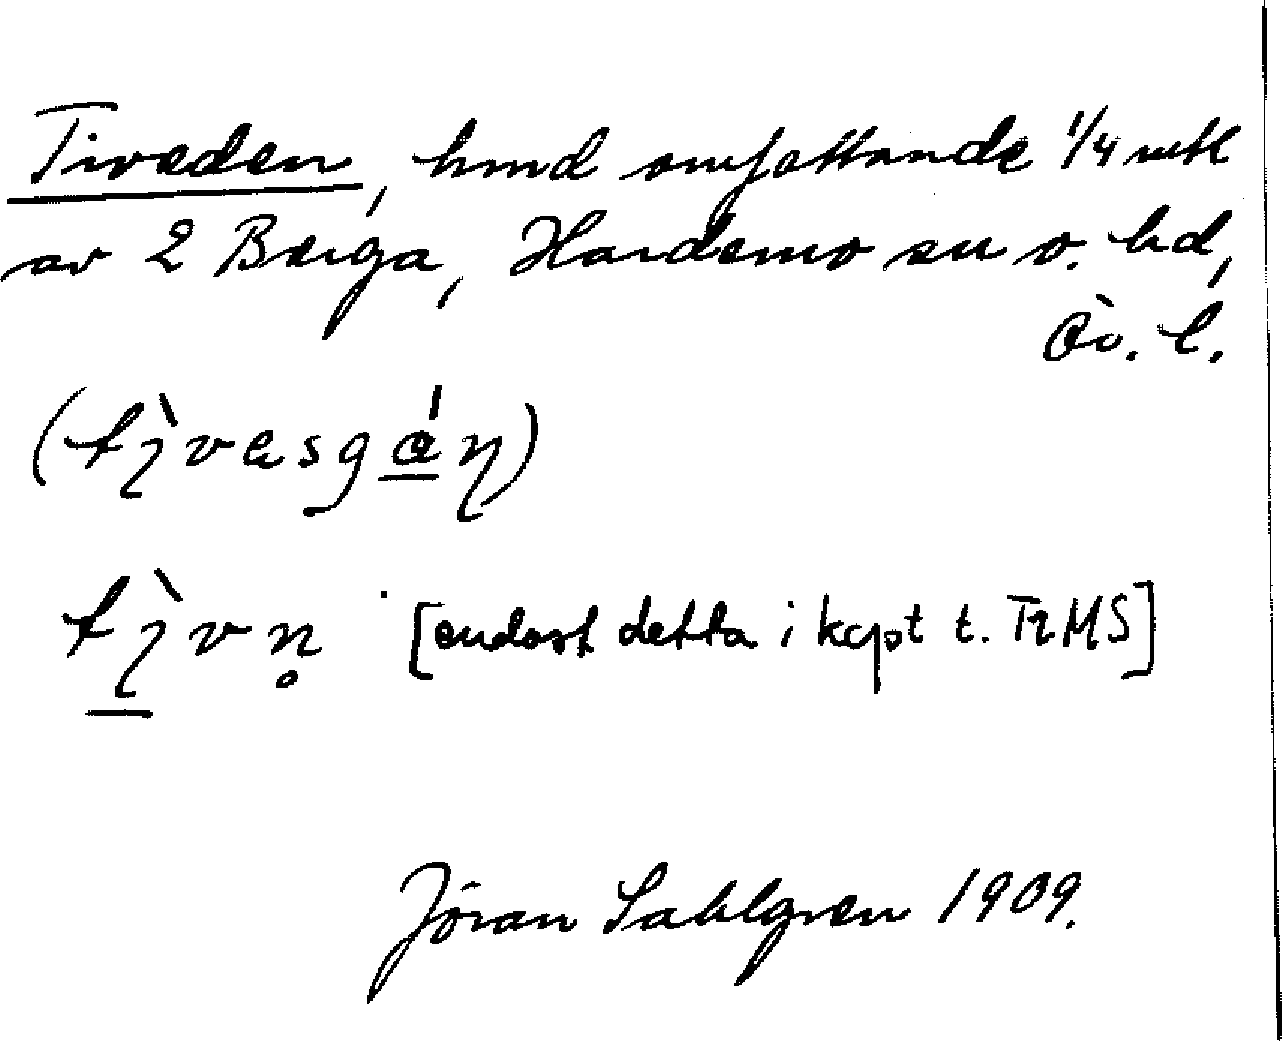 Tiveden, hmd omfattande 1/4 mtl
av 2 Berga, Hardemo sn o. hd,
Ör. l.
[endast detta i kcpt t. TRMS]
Jöran Sahlgren 1909.